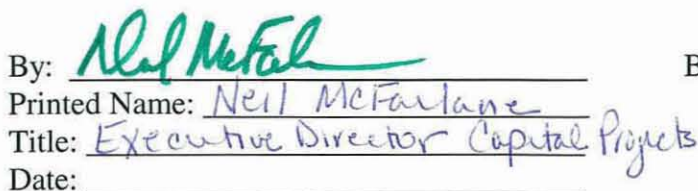 By: Neil McFarlane B
Printed Name: Neil McFarlane
Title: Executive Director Capital Projects
Date: